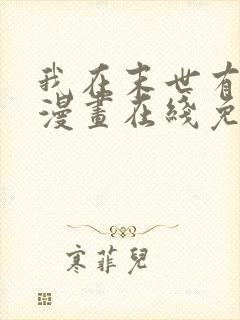 我在末世有
漫畫在綫免
寒菲兒